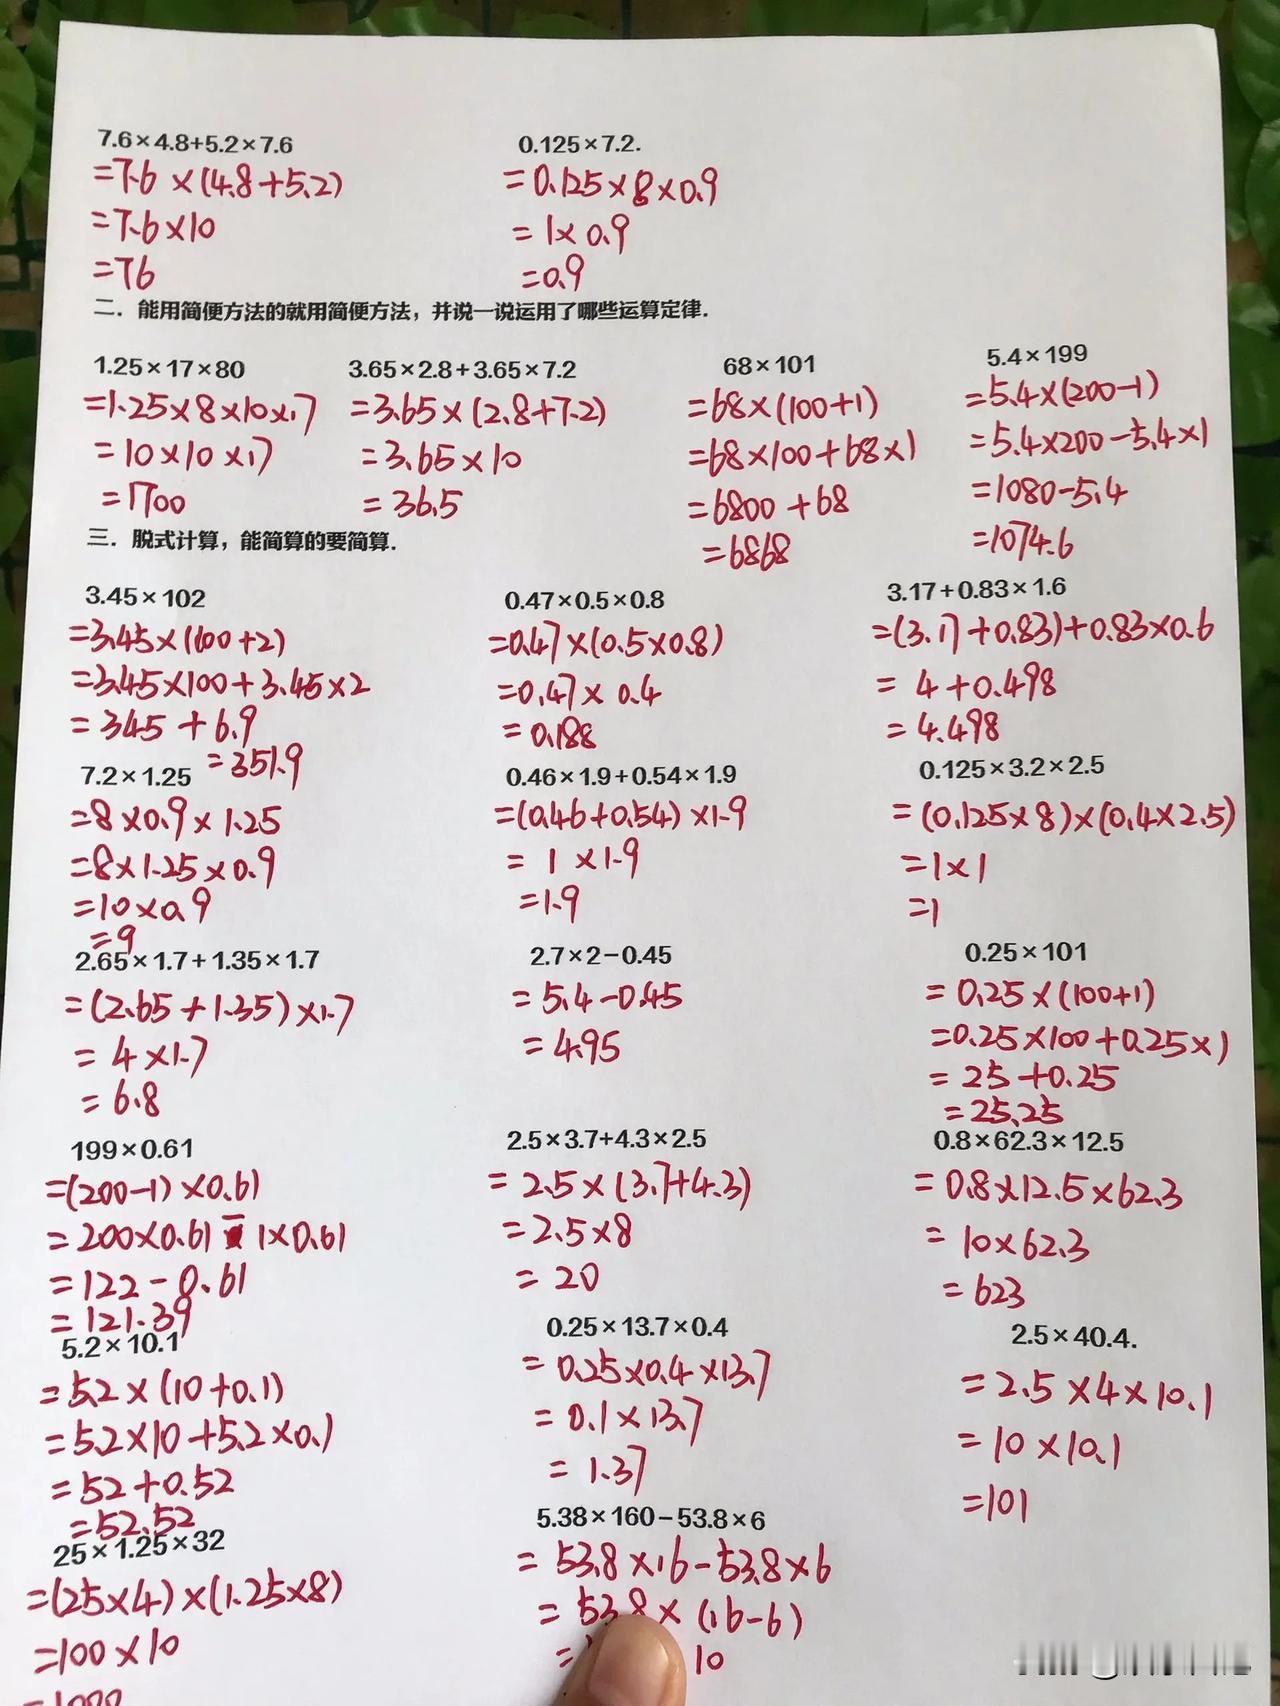 7.6×4.8+5.2×7.6
=7.6×(4.8+5.2)
=7.6×10
=76
0.125×7.2.
=0.125×8×0.9
=1×0.9
=0.9
二.能用简便方法的就用简便方法，并说一说运用了哪些运算定律.
1.25×17×80
=1.25×8×10×17
=10×10×17
=1700
3.65×2.8+3.65×7.2
=3.65×(2.8+7.2)
=3.65×10
=36.5
68×101
=68×(100+1)
=68×100+68×1
=6800+68
=6868
5.4×199
=5.4×(200-1)
=5.4×200-5.4×1
=1080-5.4
=1074.6
三.脱式计算，能简算的要简算.
3.45×102
=3.45×(100+2)
=3.45×100+3.45×2
=345+6.9
=351.9
0.47×0.5×0.8
=0.47×(0.5×0.8)
=0.47×0.4
=0.188
3.17+0.83×1.6
=(3.17+0.83)+0.83×0.6
=4+0.498
=4.498
7.2×1.25
=8×0.9×1.25
=8×1.25×0.9
=10×0.9
=9
0.46×1.9+0.54×1.9
=(0.46+0.54)×1.9
=1×1.9
=1.9
0.125×3.2×2.5
=(0.125×8)×(0.4×2.5)
=1×1
=1
2.65×1.7+1.35×1.7
=(2.65+1.35)×1.7
=4×1.7
=6.8
2.7×2-0.45
=5.4-0.45
=4.95
0.25×101
=0.25×(100+1)
=0.25×100+0.25×1
=25+0.25
=25.25
199×0.61
=(200-1)×0.61
=200×0.61-1×0.61
=122-0.61
=121.39
2.5×3.7+4.3×2.5
=2.5×(3.7+4.3)
=2.5×8
=20
0.8×62.3×12.5
=0.8×12.5×62.3
=10×62.3
=623
5.2×10.1
=5.2×(10+0.1)
=5.2×10+5.2×0.1
=52+0.52
=52.52
0.25×13.7×0.4
=0.25×0.4×13.7
=0.1×13.7
=1.37
2.5×40.4.
=2.5×4×10.1
=10×10.1
=101
25×1.25×32
=(25×4)×(1.25×8)
=100×10
=1000
5.38×160-53.8×6
=53.8×16-53.8×6
=53.8×(16-6)
= 10